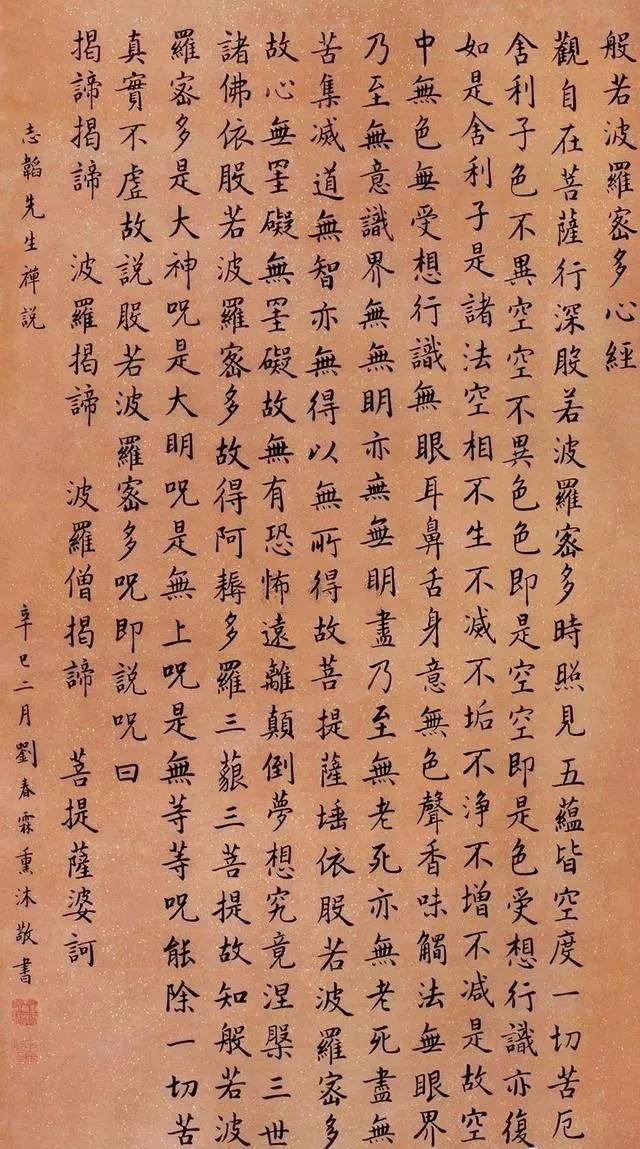 般若波羅密多心經
觀自在菩薩行深般若波羅密多時照見五蘊皆空度一切苦厄
舍利子色不異空空不異色色即是空空即是色受想行識亦復
如是舍利子是諸法空相不生不滅不垢不淨不增不減是故空
中無色無受想行識無眼耳鼻舌身意無色聲香味觸法無眼界
乃至無意識界無無明亦無無明盡乃至無老死亦無老死盡無
苦集滅道無智亦無得以無所得故菩提薩埵依般若波羅密多
故心無罣礙無罣礙故無有恐怖遠離顛倒夢想究竟涅槃三世
諸佛依般若波羅密多故得阿耨多羅三藐三菩提故知般若波
羅密多是大神咒是大明咒是無上咒是無等等咒能除一切苦
真實不虛故說般若波羅密多咒即說咒曰
揭諦揭諦 波羅揭諦 波羅僧揭諦 菩提薩婆訶
志韜先生禪說 辛巳二月劉春霖熏沐敬書